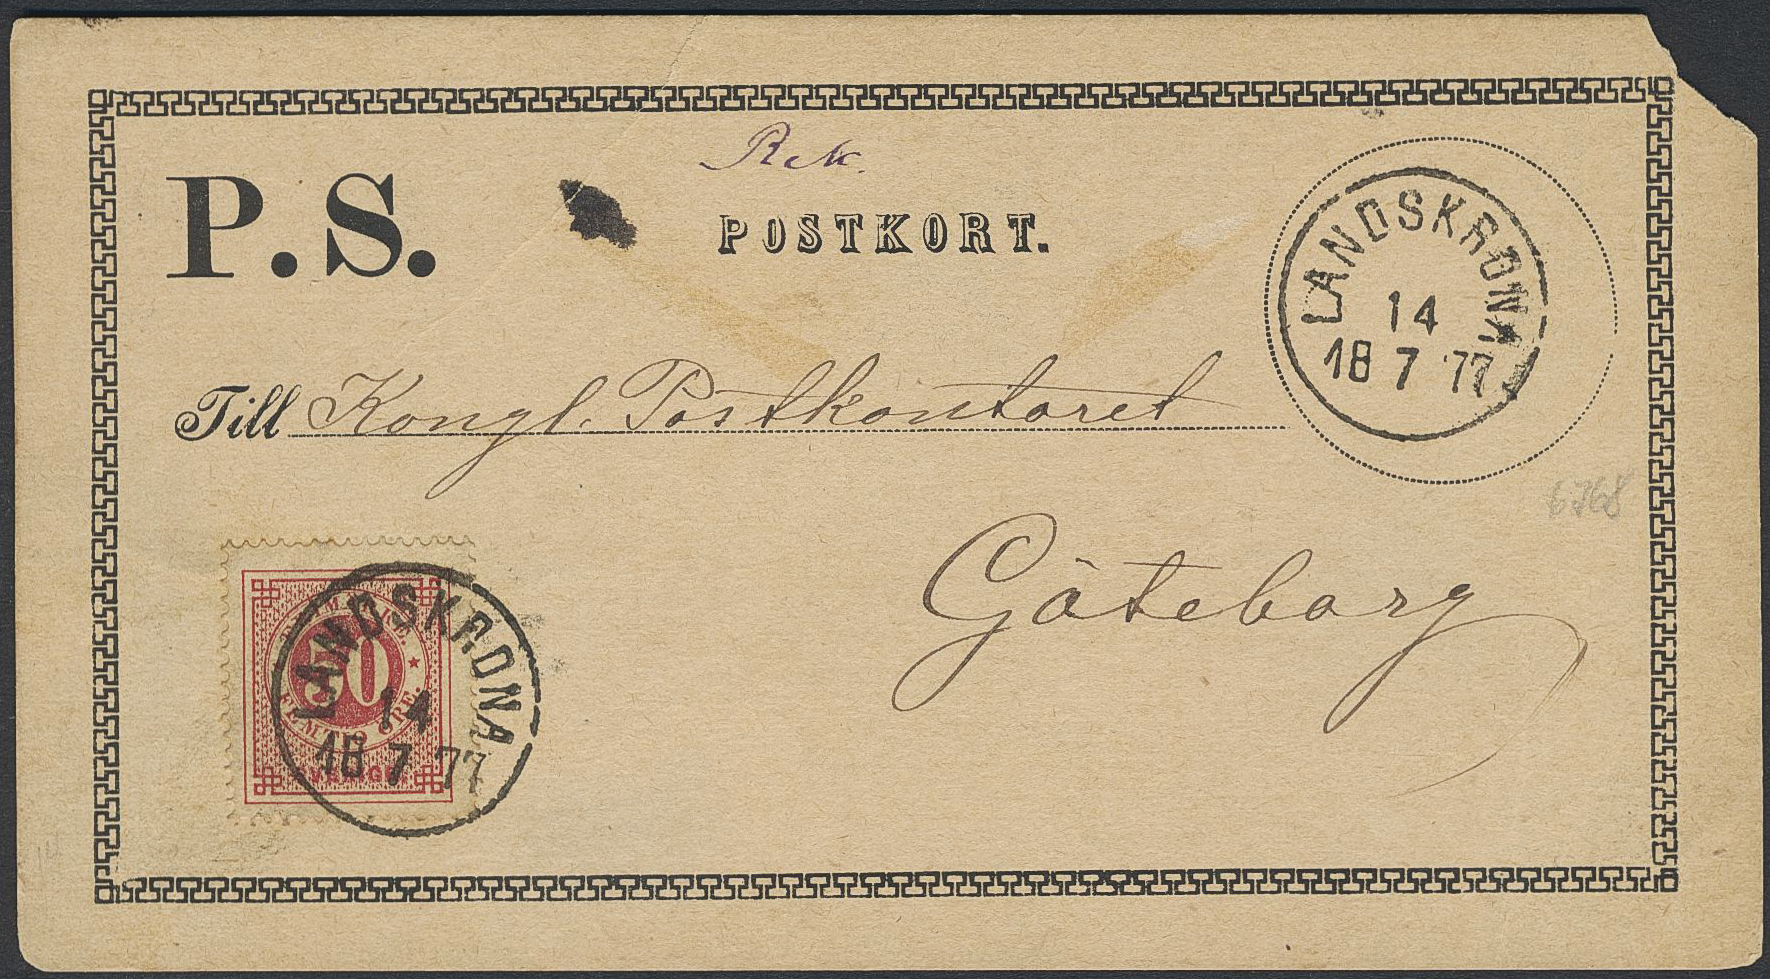 P.S.
Rek.
POSTKORT.
LANDSKRONA
14
18 7 77
Till Kongl. Postkontoret
6768
Göteborg
50
FEMTIO ÖRE.
SVERIGE
LANDSKRONA
14
18 7 77